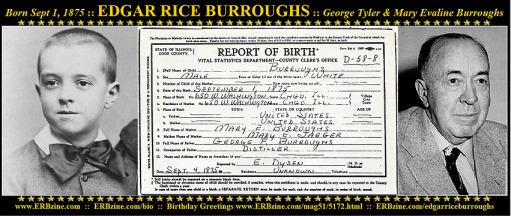 Born Sept 1, 1875 :: EDGAR RICE BURROUGHS :: George Tyler & Mary Evaline Burroughs
STATE OF ILLINOIS,
COOK COUNTY.
REPORT OF BIRTH
VITAL STATISTICS DEPARTMENT—COUNTY CLERK'S OFFICE D-58-8
1. Full Name of Child BURROUGHS
2. Sex MALE WHITE
3. Number of Child of this Mother
4. Date of this Birth SEPTEMBER 1, 1875
5. Place of Birth 650 W. WASHINGTON, CHGO. ILL.
6. Residence of Mother 650 W. WASHINGTON CHGO. ILL.
7. Place of Birth TOWN STATE OR COUNTRY AGE OF
a. Father UNITED STATES.
b. Mother UNITED STATES.
8. Full Name of Mother MARY E. BURROUGHS
9. Maiden Name of Mother MARY E. JAEGER
10. Full Name of Father GEORGE P. BURROUGHS
11. Occupation of Father DISTILLER
12. Name and Address of Nurse or Attendant (if any)
Reported by E. DYSEN
Date SEPT. 4, 1875. Residence UNKNOWN Telephone
www.ERBzine.com :: ERBzine.com/bio :: Birthday Greetings www.ERBzine.com/mag51/5172.html :: ERBzine.com/edgarriceburroughs